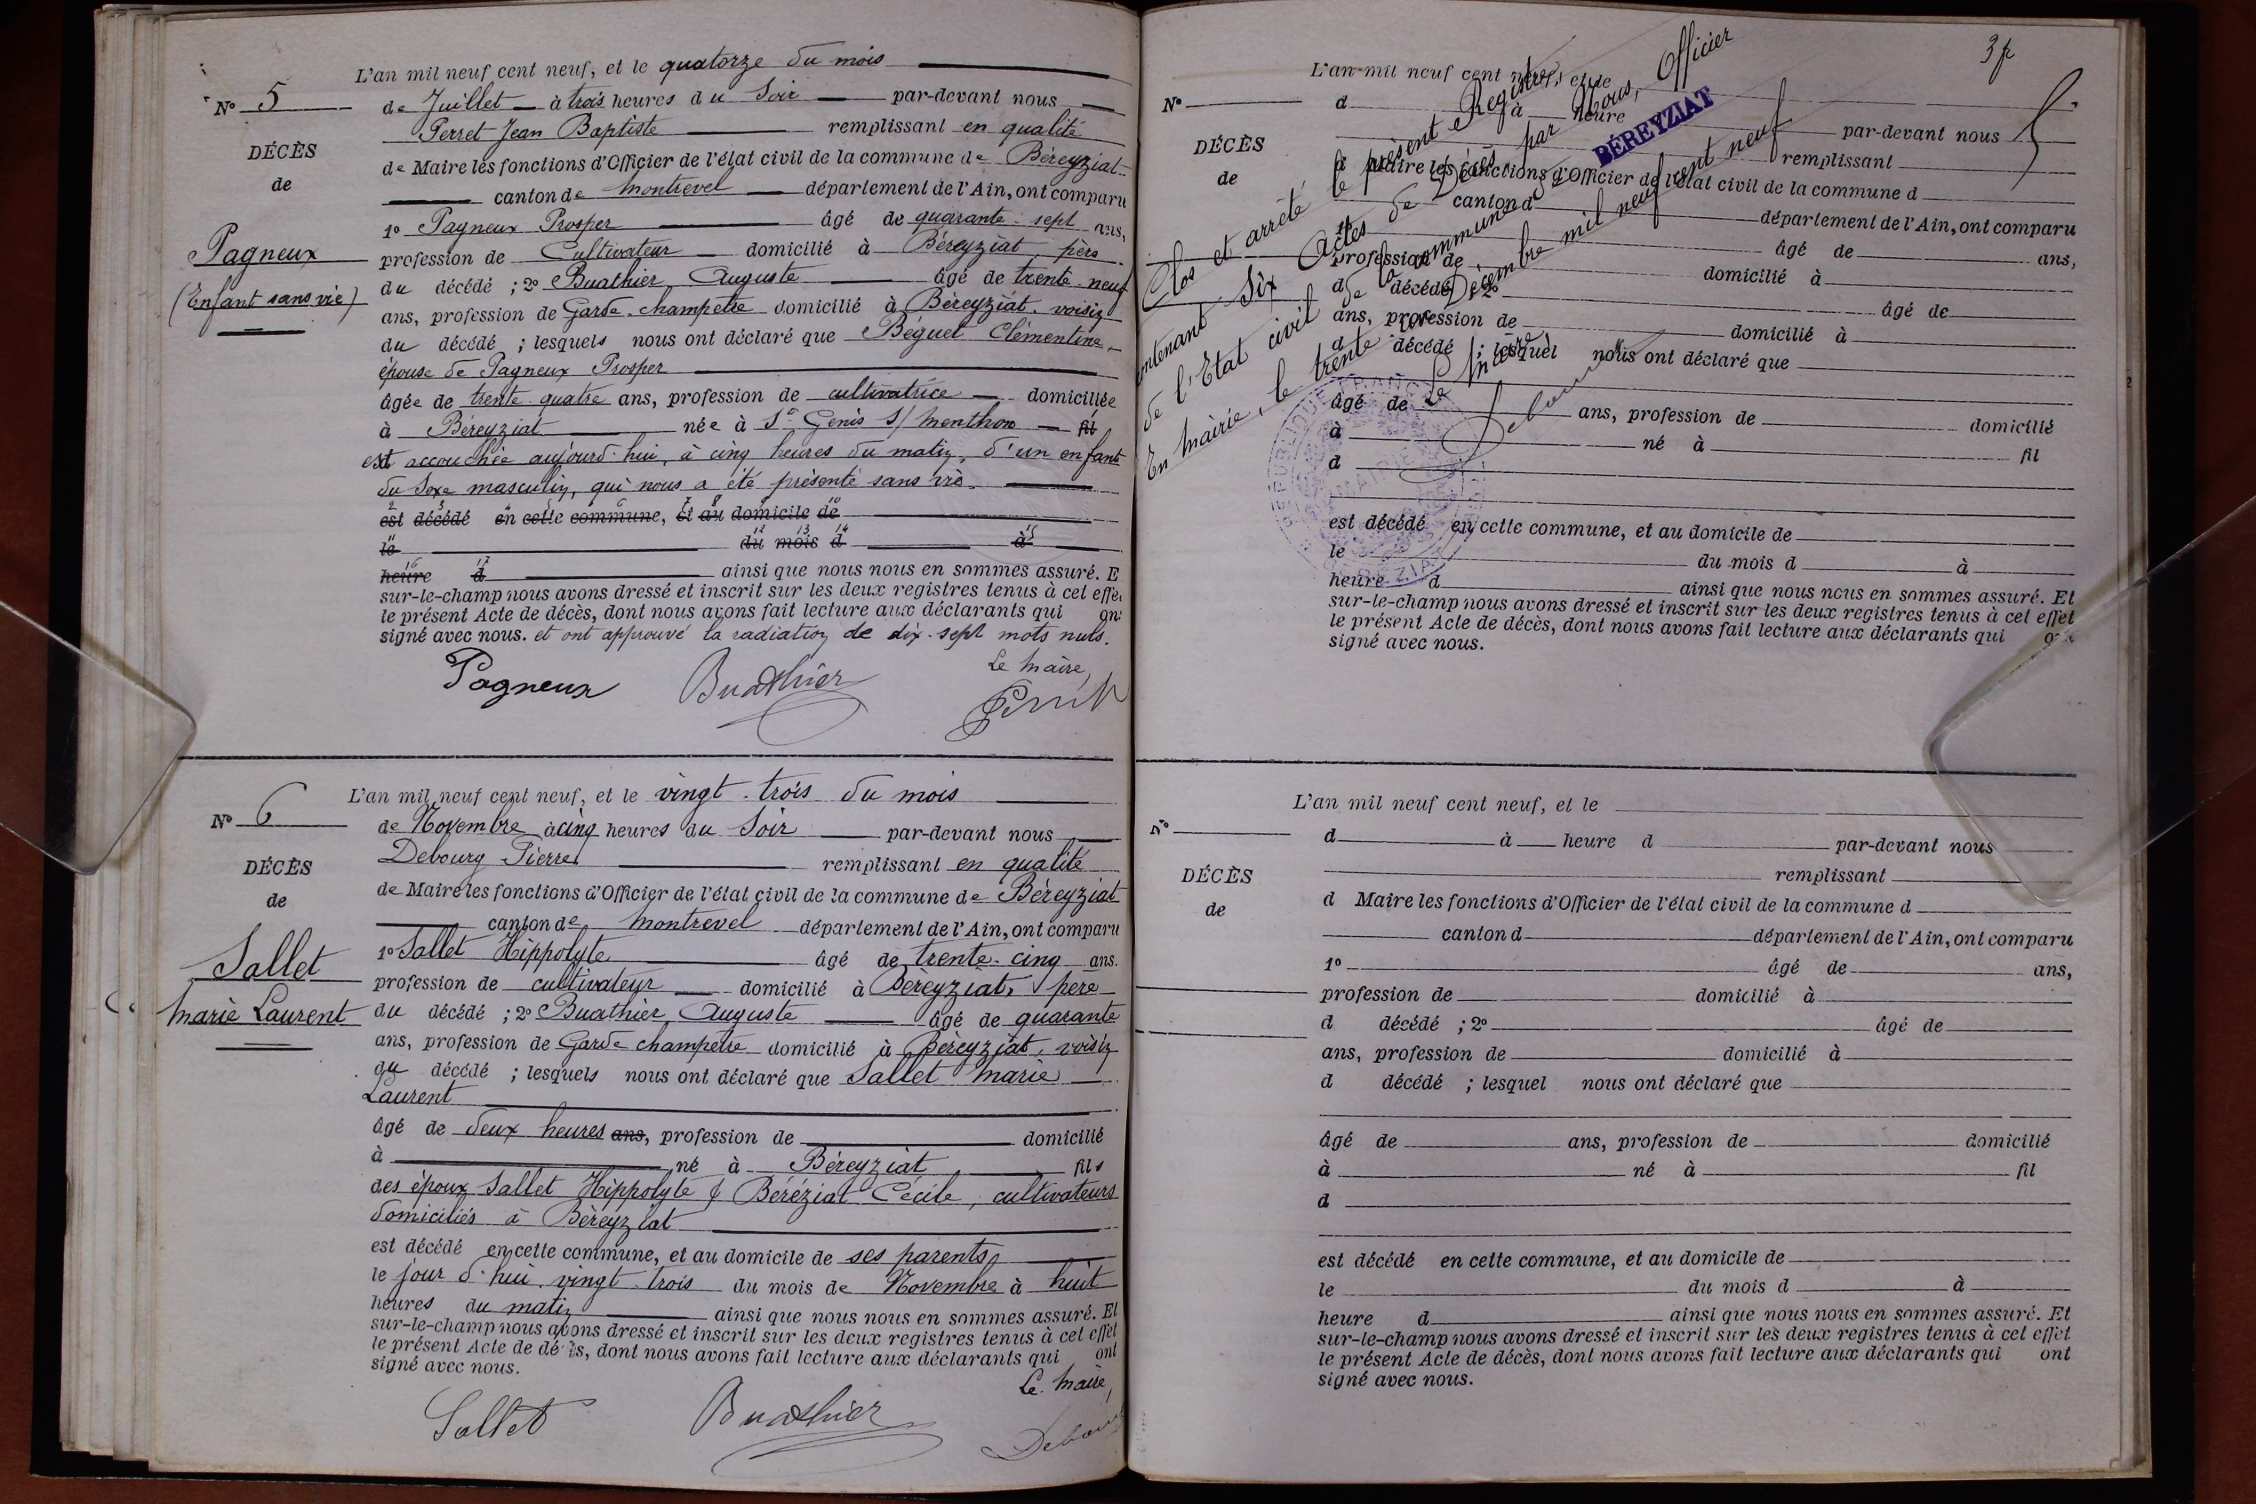 L'an mil neuf cent neuf, et le quatorze du mois
N° 5
de Juillet à trois heures du Soir par-devant nous
Perret Jean Baptiste remplissant en qualité
DÉCÈS
de Maire les fonctions d'Officier de l'état civil de la commune de Béreyziat
de
canton de Montrevel département de l'Ain, ont comparu
1° Pagneux Prosper âgé de quarante-sept ans,
Pagneux
profession de Cultivateur domicilié à Béreyziat, père
(Enfant sans vie)
du décédé ; 2° Buathier Auguste âgé de trente-neuf
ans, profession de Garde-champetre domicilié à Béreyziat, voisin
du décédé ; lesquels nous ont déclaré que Béguet Clémentine,
épouse de Pagneux Prosper
âgée de trente-quatre ans, profession de cultivatrice domiciliée
à Béreyziat née à St Genis s/ Menthon fil
est accouchée aujourd'hui, à cinq heures du matin, d'un enfant
du sexe masculin, qui nous a été présenté sans vie.
est décédé en cette commune, et au domicile de
le du mois d à
heure d ainsi que nous nous en sommes assuré. E
sur-le-champ nous avons dressé et inscrit sur les deux registres tenus à cet effe
le présent Acte de décès, dont nous avons fait lecture aux déclarants qui on
signé avec nous. et ont approuvé la radiation de dix-sept mots nuls.
Le Maire,
Pagneux Buathier Perret
L'an mil neuf cent neuf, et le vingt-trois du mois
N° 6
de Novembre à cinq heures du Soir par-devant nous
Debourg Pierre remplissant en qualité
DÉCÈS
de Maire les fonctions d'Officier de l'état civil de la commune de Béreyziat
de
canton de Montrevel département de l'Ain, ont comparu
1° Sallet Hippolyte âgé de trente-cinq ans.
Sallet
profession de cultivateur domicilié à Béreyziat, père
Marie Laurent
du décédé ; 2° Buathier Auguste âgé de quarante
ans, profession de Garde champetre domicilié à Béreyziat, voisin
du décédé ; lesquels nous ont déclaré que Sallet Marie
Laurent
âgé de deux heures ans, profession de domicilié
à né à Béreyziat fils
des époux Sallet Hippolyte & Béréziat Cécile, cultivateurs
domiciliés à Béreyziat
est décédé en cette commune, et au domicile de ses parents
le jour d'hui vingt-trois du mois de Novembre à huit
heures du matin ainsi que nous nous en sommes assuré. Et
sur-le-champ nous avons dressé et inscrit sur les deux registres tenus à cet effet
le présent Acte de décès, dont nous avons fait lecture aux déclarants qui ont
signé avec nous.
Le Maire,
Sallet Buathier Debourg
3
L'an mil neuf cent neuf, et le
N°
d à heure
par-devant nous
DÉCÈS
remplissant
de
d Maire les fonctions d'Officier de l'état civil de la commune d
canton d département de l'Ain, ont comparu
1° âgé de ans,
profession de domicilié à
d décédé ; 2° âgé de
ans, profession de domicilié à
d décédé ; lesquel nous ont déclaré que
âgé de ans, profession de domicilié
à né à fil
d
est décédé en cette commune, et au domicile de
le du mois d à
heure d ainsi que nous nous en sommes assuré. Et
sur-le-champ nous avons dressé et inscrit sur les deux registres tenus à cet effet
le présent Acte de décès, dont nous avons fait lecture aux déclarants qui ont
signé avec nous.
Clos et arrêté le présent Registre,
contenant Six Actes de Décès, par Nous, Officier
de l'Etat civil de la commune de BÉREYZIAT
En Mairie, le trente un Décembre mil neuf cent neuf
Le Maire
Debourg
RÉPUBLIQUE FRANÇAISE
MAIRIE
BÉREYZIAT
L'an mil neuf cent neuf, et le
N°
d à heure d par-devant nous
remplissant
DÉCÈS
d Maire les fonctions d'Officier de l'état civil de la commune d
de
canton d département de l'Ain, ont comparu
1° âgé de ans,
profession de domicilié à
d décédé ; 2° âgé de
ans, profession de domicilié à
d décédé ; lesquel nous ont déclaré que
âgé de ans, profession de domicilié
à né à fil
d
est décédé en cette commune, et au domicile de
le du mois d à
heure d ainsi que nous nous en sommes assuré. Et
sur-le-champ nous avons dressé et inscrit sur les deux registres tenus à cet effet
le présent Acte de décès, dont nous avons fait lecture aux déclarants qui ont
signé avec nous.